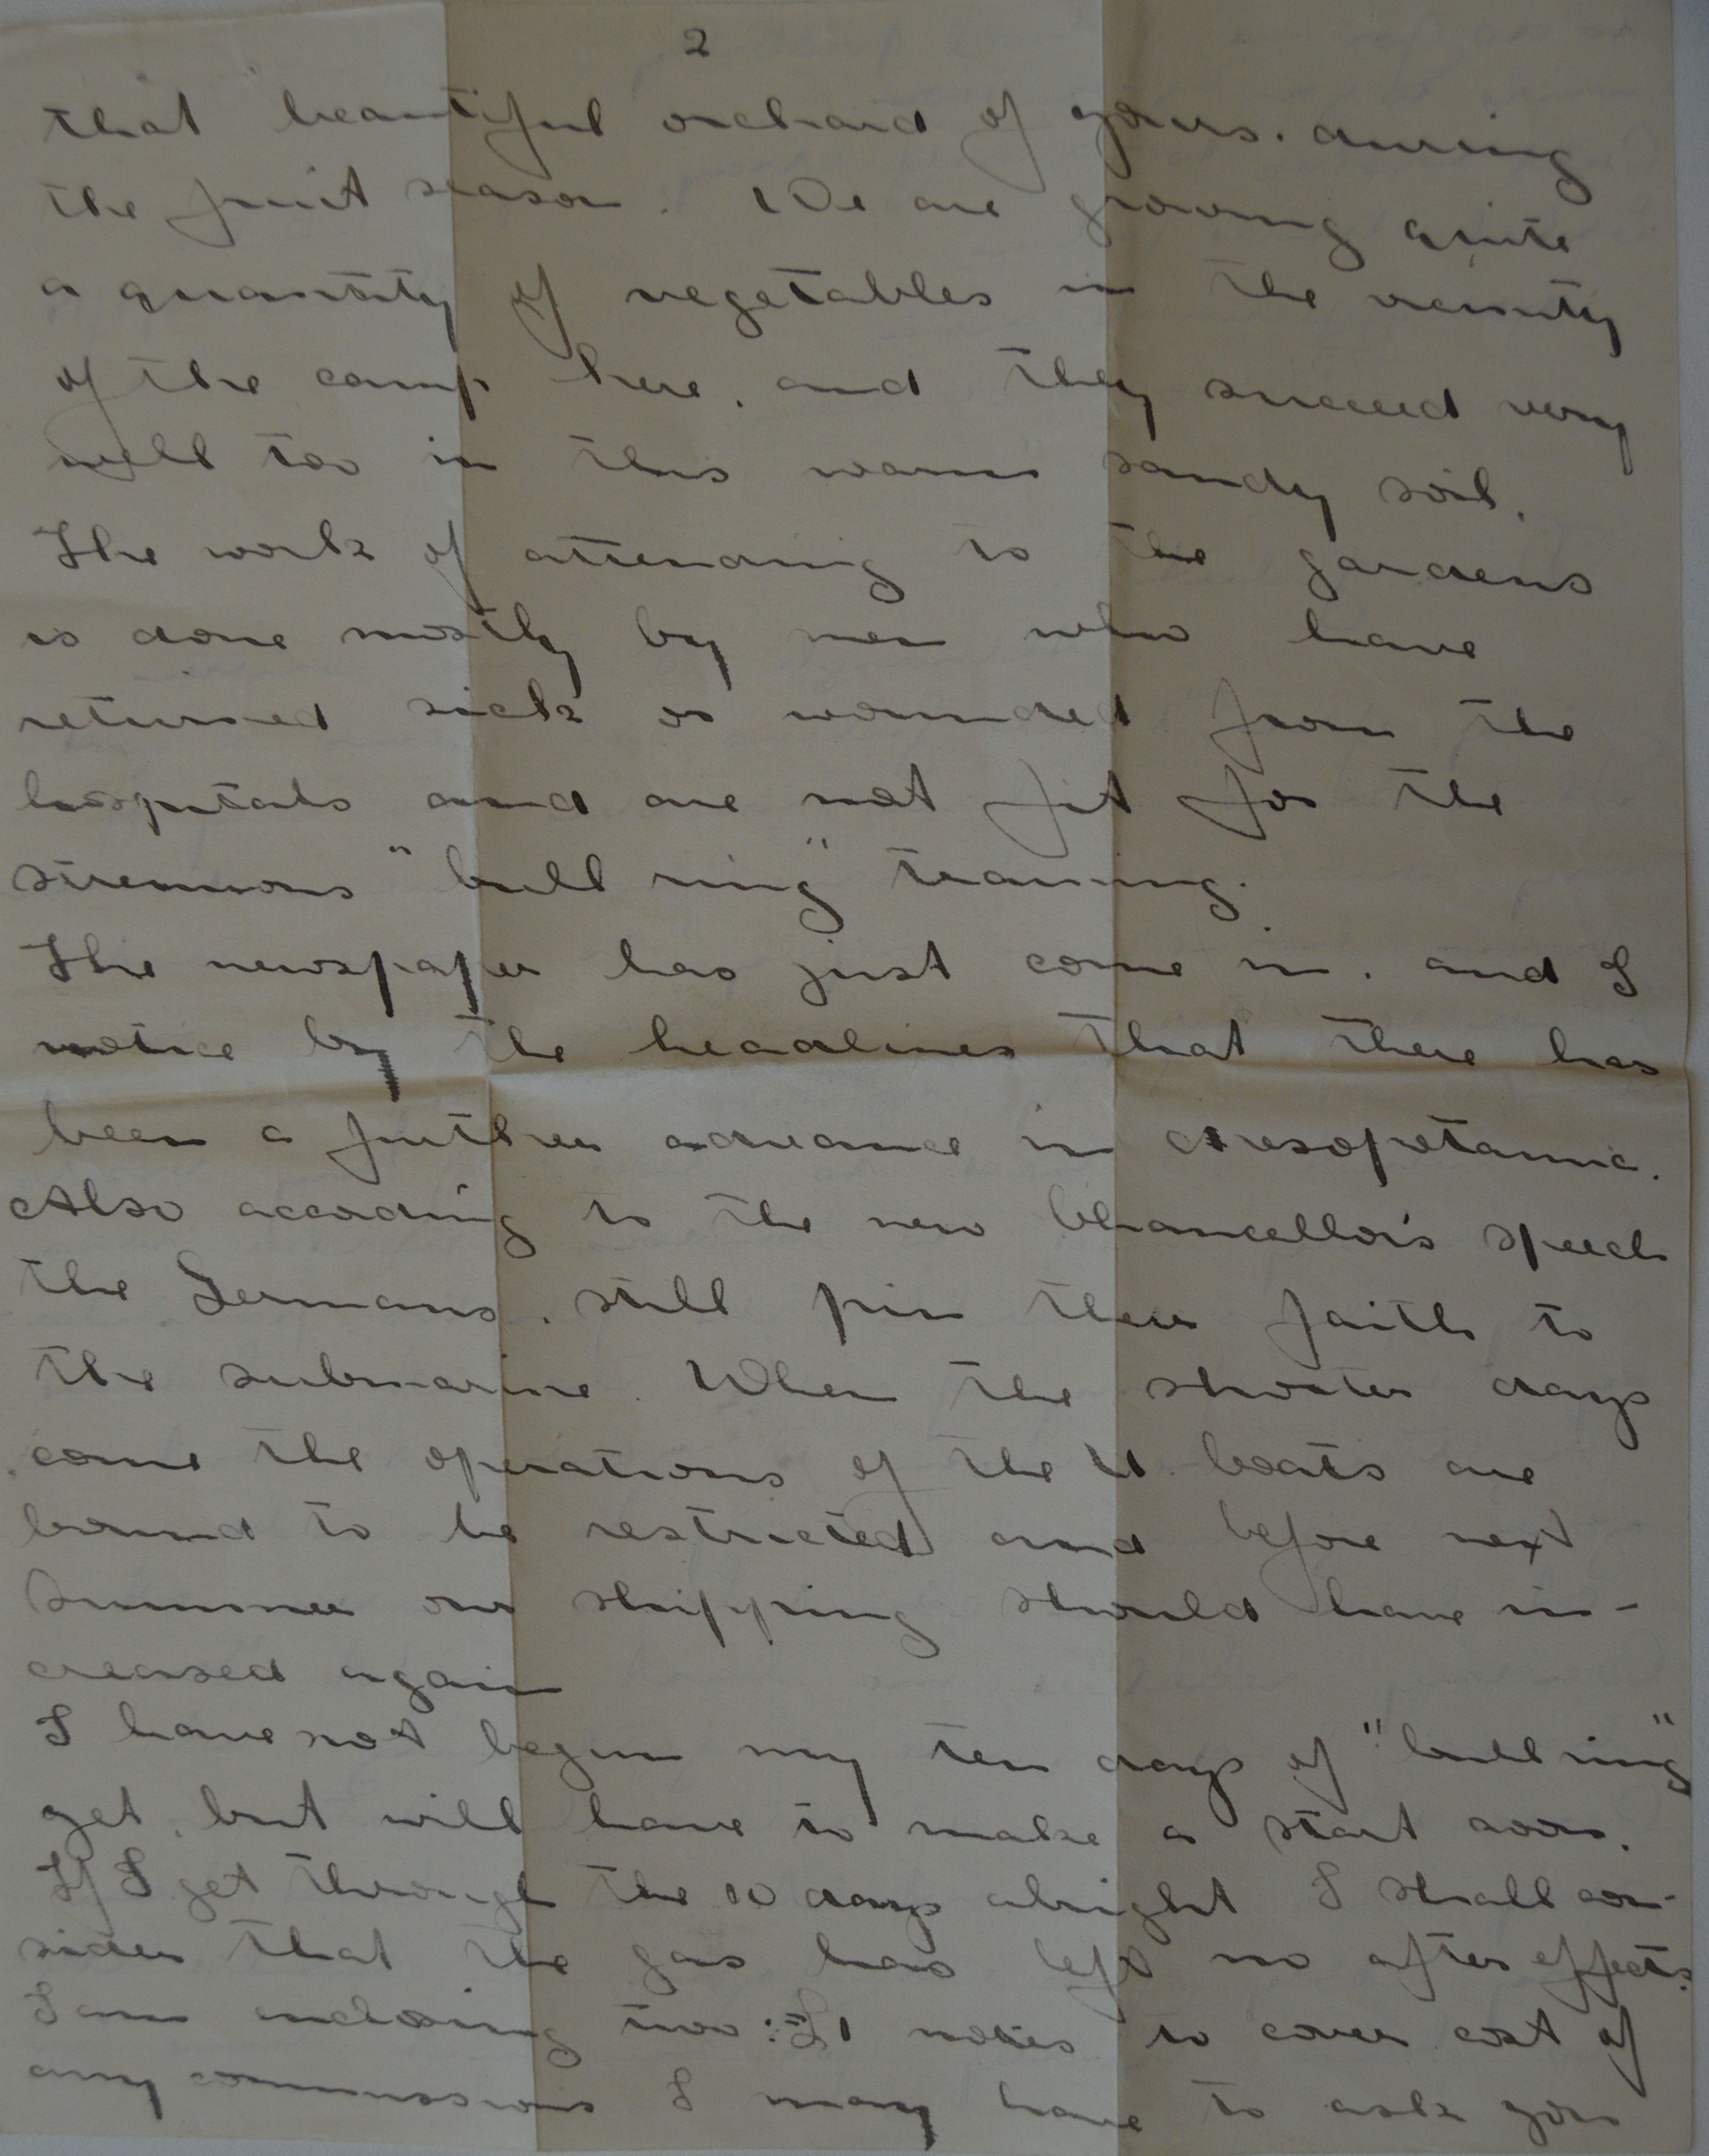 2
that beautiful orchard of yours. during
the fruit season. We are growing quite
a quantity of vegetables in the vicinity
of the camp here, and they succeed very
well too in this warm sandy soil.
The work of attending to the gardens
is done mostly by men who have
returned sick or wounded from the
hospitals and are not fit for the
strenuous "bull ring" training.
The newspaper has just come in. and I
notice by the headlines that there has
been a further advance in Mesopotamia.
Also according to the new Chancellor's speech
the Germans. still pin their faith to
the submarine. When the shorter days
come the operations of the U boats are
bound to be restricted and before next
Summer our shipping should have in-
creased again
I have not begun my ten days of "bull ring"
yet, but will have to make a start soon.
If I get through the 10 days alright I shall con-
sider that the gas has left no after effects.
I am enclosing two £1 notes to cover cost of
any commissions I may have to ask you